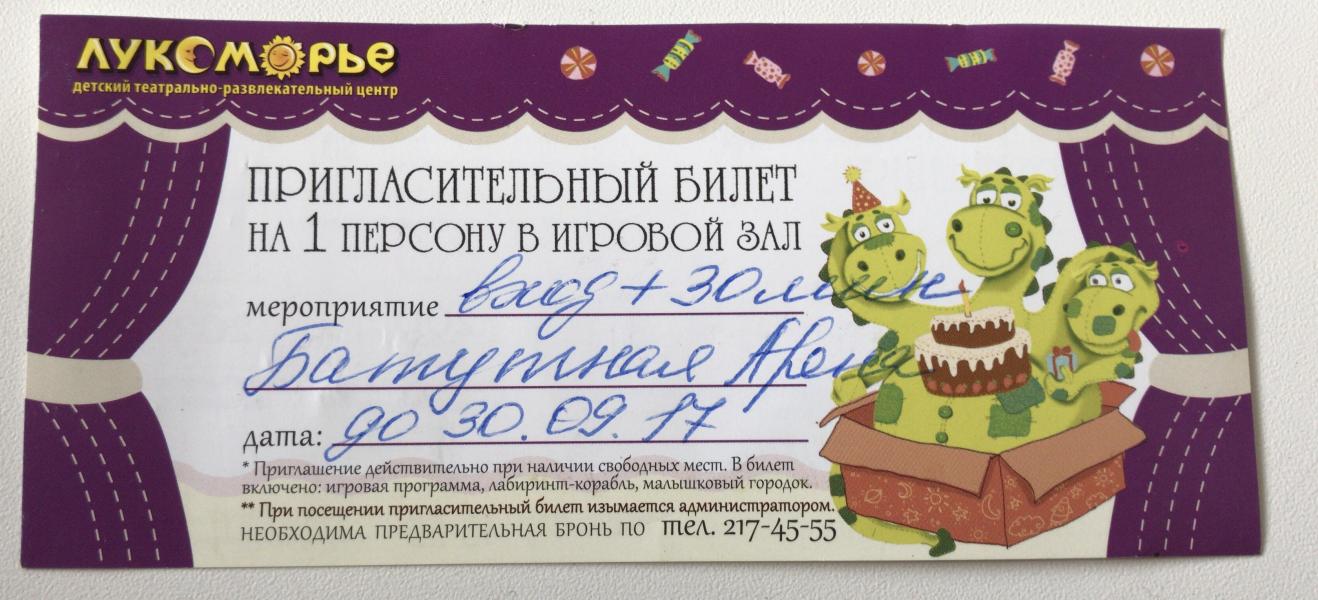 ЛУКОМОРЬЕ
детский театрально-развлекательный центр
ПРИГЛАСИТЕЛЬНЫЙ БИЛЕТ
НА 1 ПЕРСОНУ В ИГРОВОЙ ЗАЛ
мероприятие вход + 30 мин
Батутная Арена
дата: до 30.09.17
* Приглашение действительно при наличии свободных мест. В билет
включено: игровая программа, лабиринт-корабль, малышковый городок.
** При посещении пригласительный билет изымается администратором.
НЕОБХОДИМА ПРЕДВАРИТЕЛЬНАЯ БРОНЬ ПО тел. 217-45-55